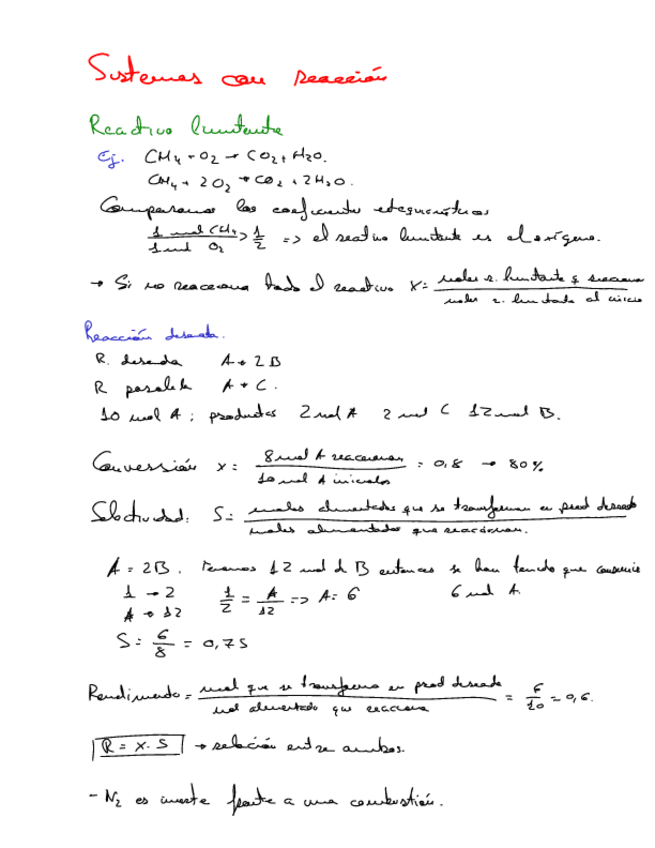 Sistemas con reacción
Reactivo limitante
Ej. CH4 + O2 → CO2 + H2O.
CH4 + 2O2 → CO2 + 2H2O.
Comparamos los coeficientes estequiométricos
1 mol CH4 / 1 mol O2 > 1/2 => el reactivo limitante es el oxígeno.
→ Si no reacciona todo el reactivo X = moles r. limitante q reacciona / moles r. limitante al inicio
Reacción deseada.
R. deseada A → 2B
R paralela A → C.
10 mol A ; productos 2 mol A 2 mol C 12 mol B.
Conversión x = 8 mol A reaccionan / 10 mol A iniciales = 0,8 → 80%
Selectividad: S = moles alimentados que se transforman en prod deseado / moles alimentados que reaccionan.
A = 2B. Tenemos 12 mol d B entonces se han tenido que consumir
1 → 2 1/2 = A/12 => A = 6 6 mol A.
A → 12
S = 6/8 = 0,75
Rendimiento = mol que se transforma en prod deseado / mol alimentado que reacciona = 6/10 = 0,6.
R = x · S → relación entre ambos.
- N2 es inerte frente a una combustión.